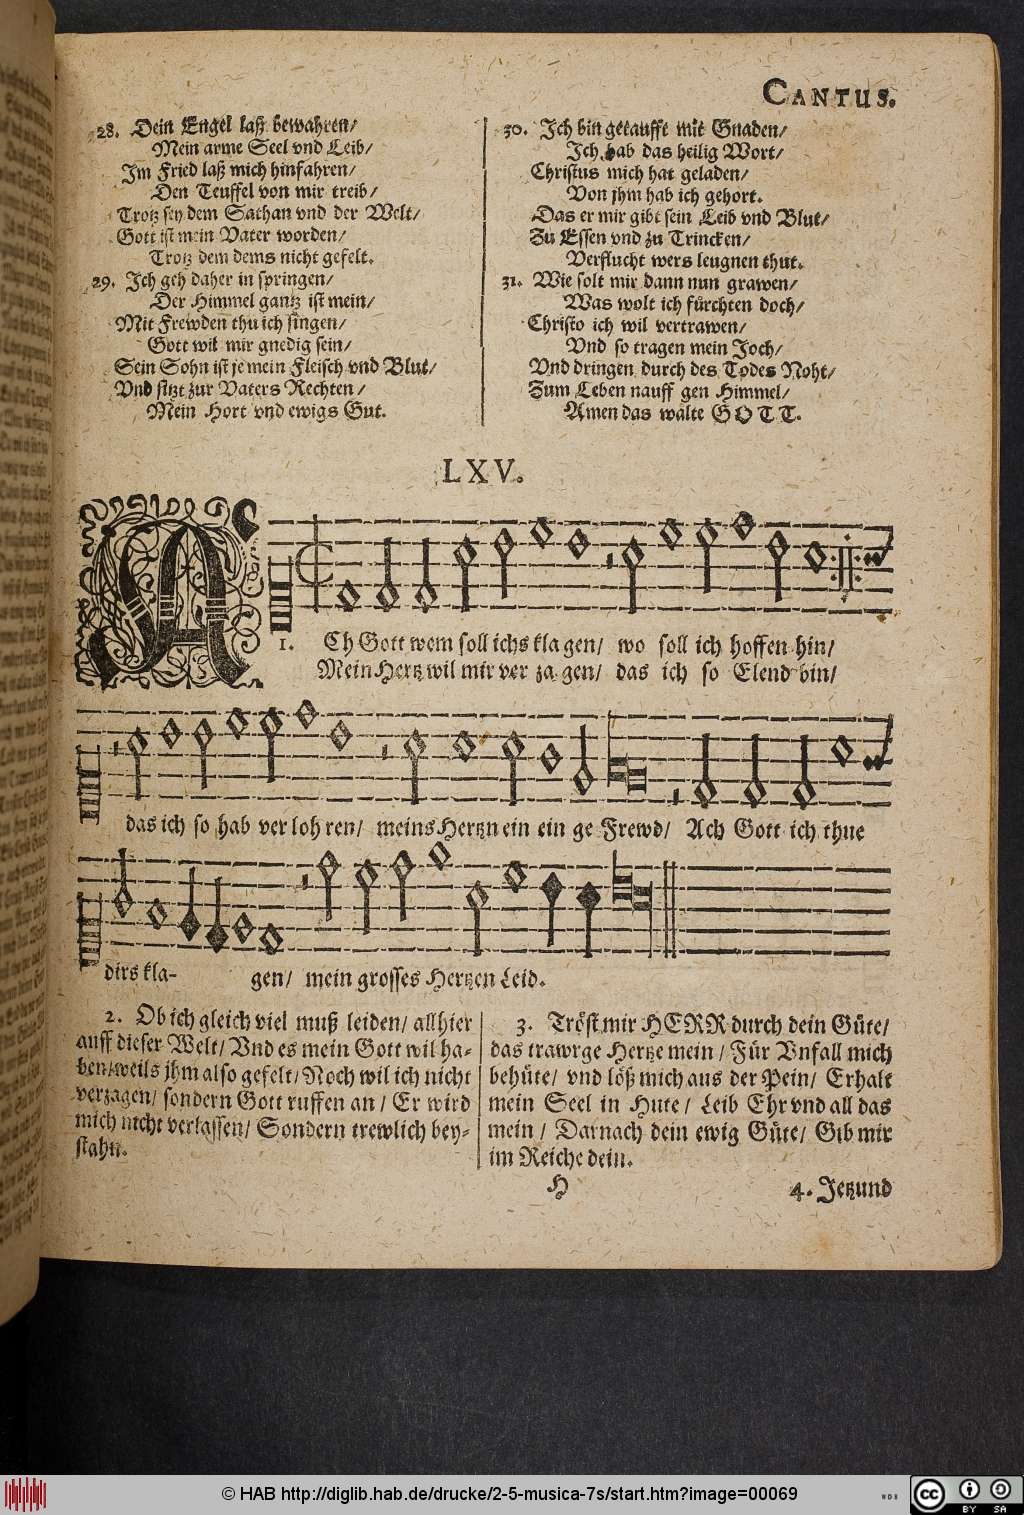 CANTUS.
28. Dein Engel laß bewahren/
Mein arme Seel vnd Leib/
Im Fried laß mich hinfahren/
Den Teuffel von mir treib/
Trotz sey dem Sathan vnd der Welt/
Gott ist mein Vater worden/
Trotz dem dems nicht gefelt.
29. Ich geh daher in springen/
Der Himmel gantz ist mein/
Mit Frewden thu ich singen/
Gott wil mir gnedig sein/
Sein Sohn ist je mein Fleisch vnd Blut/
Vnd sitzt zur Vaters Rechten/
Mein Hort vnd ewigs Gut.
30. Ich bin getaufft mit Gnaden/
Ich hab das heilig Wort/
Christus mich hat geladen/
Von jhm hab ich gehort.
Das er mir gibt sein Leib vnd Blut/
Zu Essen vnd zu Trincken/
Verflucht wers leugnen thut.
31. Wie solt mir dann nun grawen/
Was wolt ich fürchten doch/
Christo ich wil vertrawen/
Vnd so tragen mein Joch/
Vnd dringen durch des Todes Noht/
Zum Leben nauff gen Himmel/
Amen das walte GOTT.
LXV.
1. ACh Gott wem soll ichs kla gen/ wo soll ich hoffen hin/
Mein Hertz wil mir ver za gen/ das ich so Elend bin/
das ich so hab ver loh ren/ meins Hertzn ein ein ge Frewd/ Ach Gott ich thue
dirs kla- gen/ mein grosses Hertzen Leid.
2. Ob ich gleich viel muß leiden/ allhier
auff dieser Welt/ Vnd es mein Gott wil ha-
ben/weils jhm also gefelt/ Noch wil ich nicht
verzagen/ sondern Gott ruffen an/ Er wird
mich nicht verlassen/ Sondern trewlich bey-
stahn.
3. Tröst mir HERR durch dein Güte/
das trawrge Hertze mein/ Für Vnfall mich
behüte/ vnd löß mich aus der Pein/ Erhalt
mein Seel in Hute/ Leib Ehr vnd all das
mein/ Darnach dein ewig Güte/ Gib mir
im Reiche dein.
H
4. Jetzund
© HAB http://diglib.hab.de/drucke/2-5-musica-7s/start.htm?image=00069
WDB
cc
BY SA